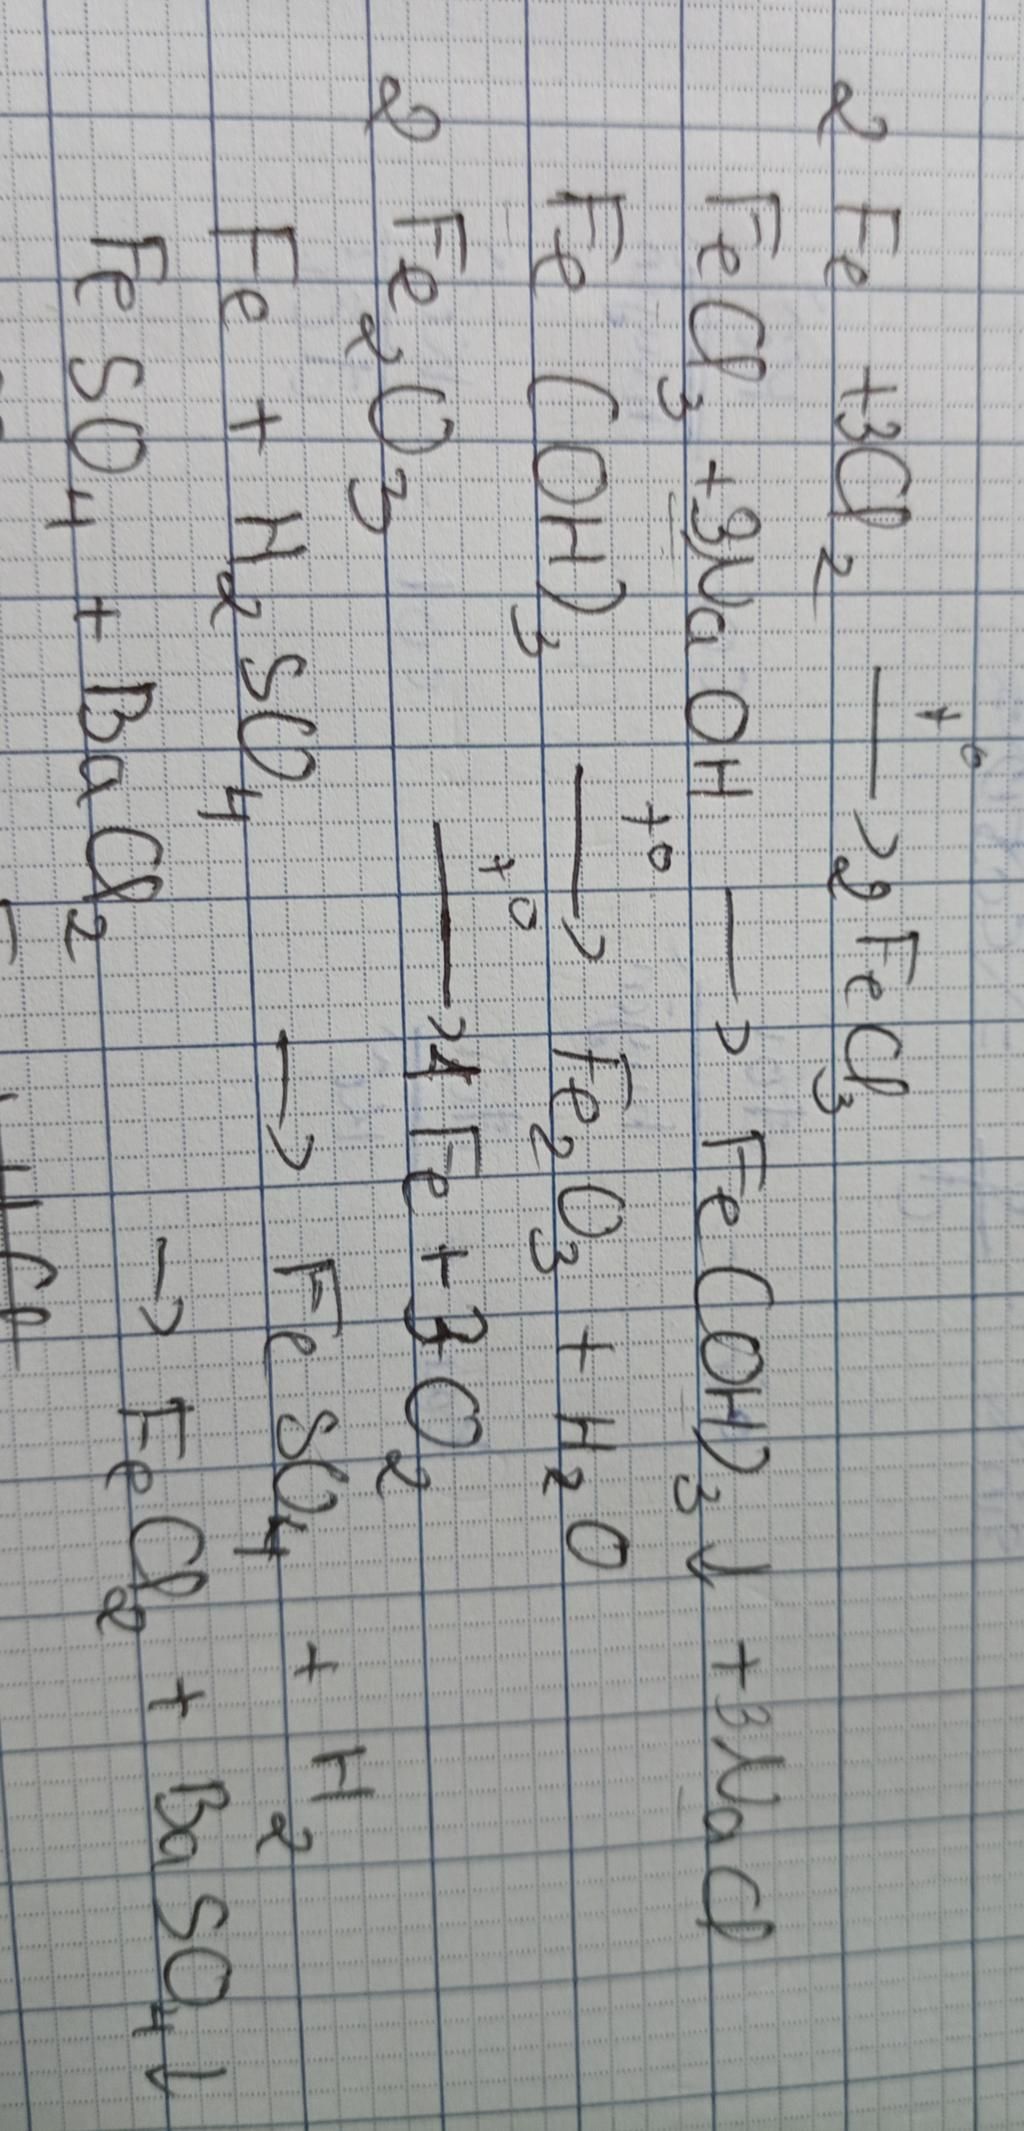 2 Fe + 3Cl₂ —t°→ 2FeCl₃
FeCl₃ + 3NaOH → Fe(OH)₃↓ + 3NaCl
Fe(OH)₃ —t°→ Fe₂O₃ + H₂O
2 Fe₂O₃ —t°→ 4Fe + 3O₂
Fe + H₂SO₄ → FeSO₄ + H₂
FeSO₄ + BaCl₂ → FeCl₂ + BaSO₄↓